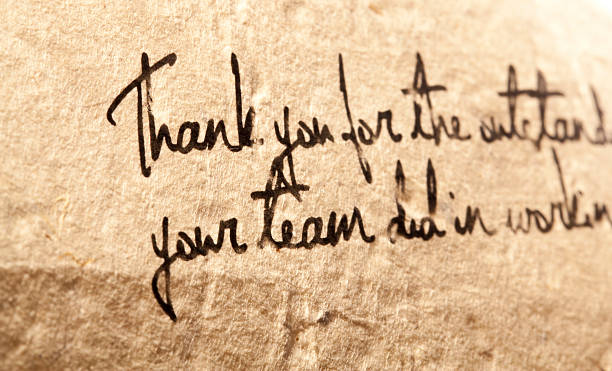 Thank you for the outstand
your team did in workin